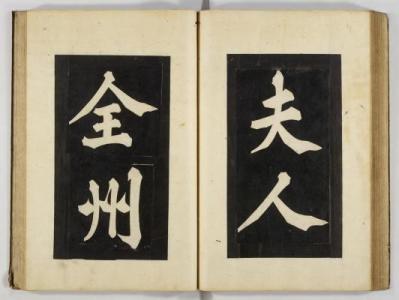 夫人
全州